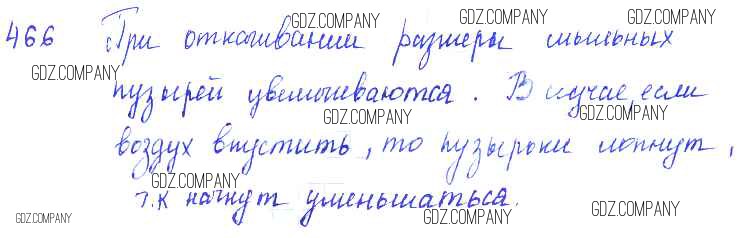 466 При откачивании размеры мыльных
пузырей увеличиваются. В случае, если
воздух впустить, то пузырьки лопнут,
т.к начнут уменьшаться.
GDZ.COMPANY
GDZ.COMPANY
GDZ.COMPANY
GDZ.COMPANY
GDZ.COMPANY
GDZ.COMPANY
GDZ.COMPANY
GDZ.COMPANY
GDZ.COMPANY
GDZ.COMPANY
GDZ.COMPANY